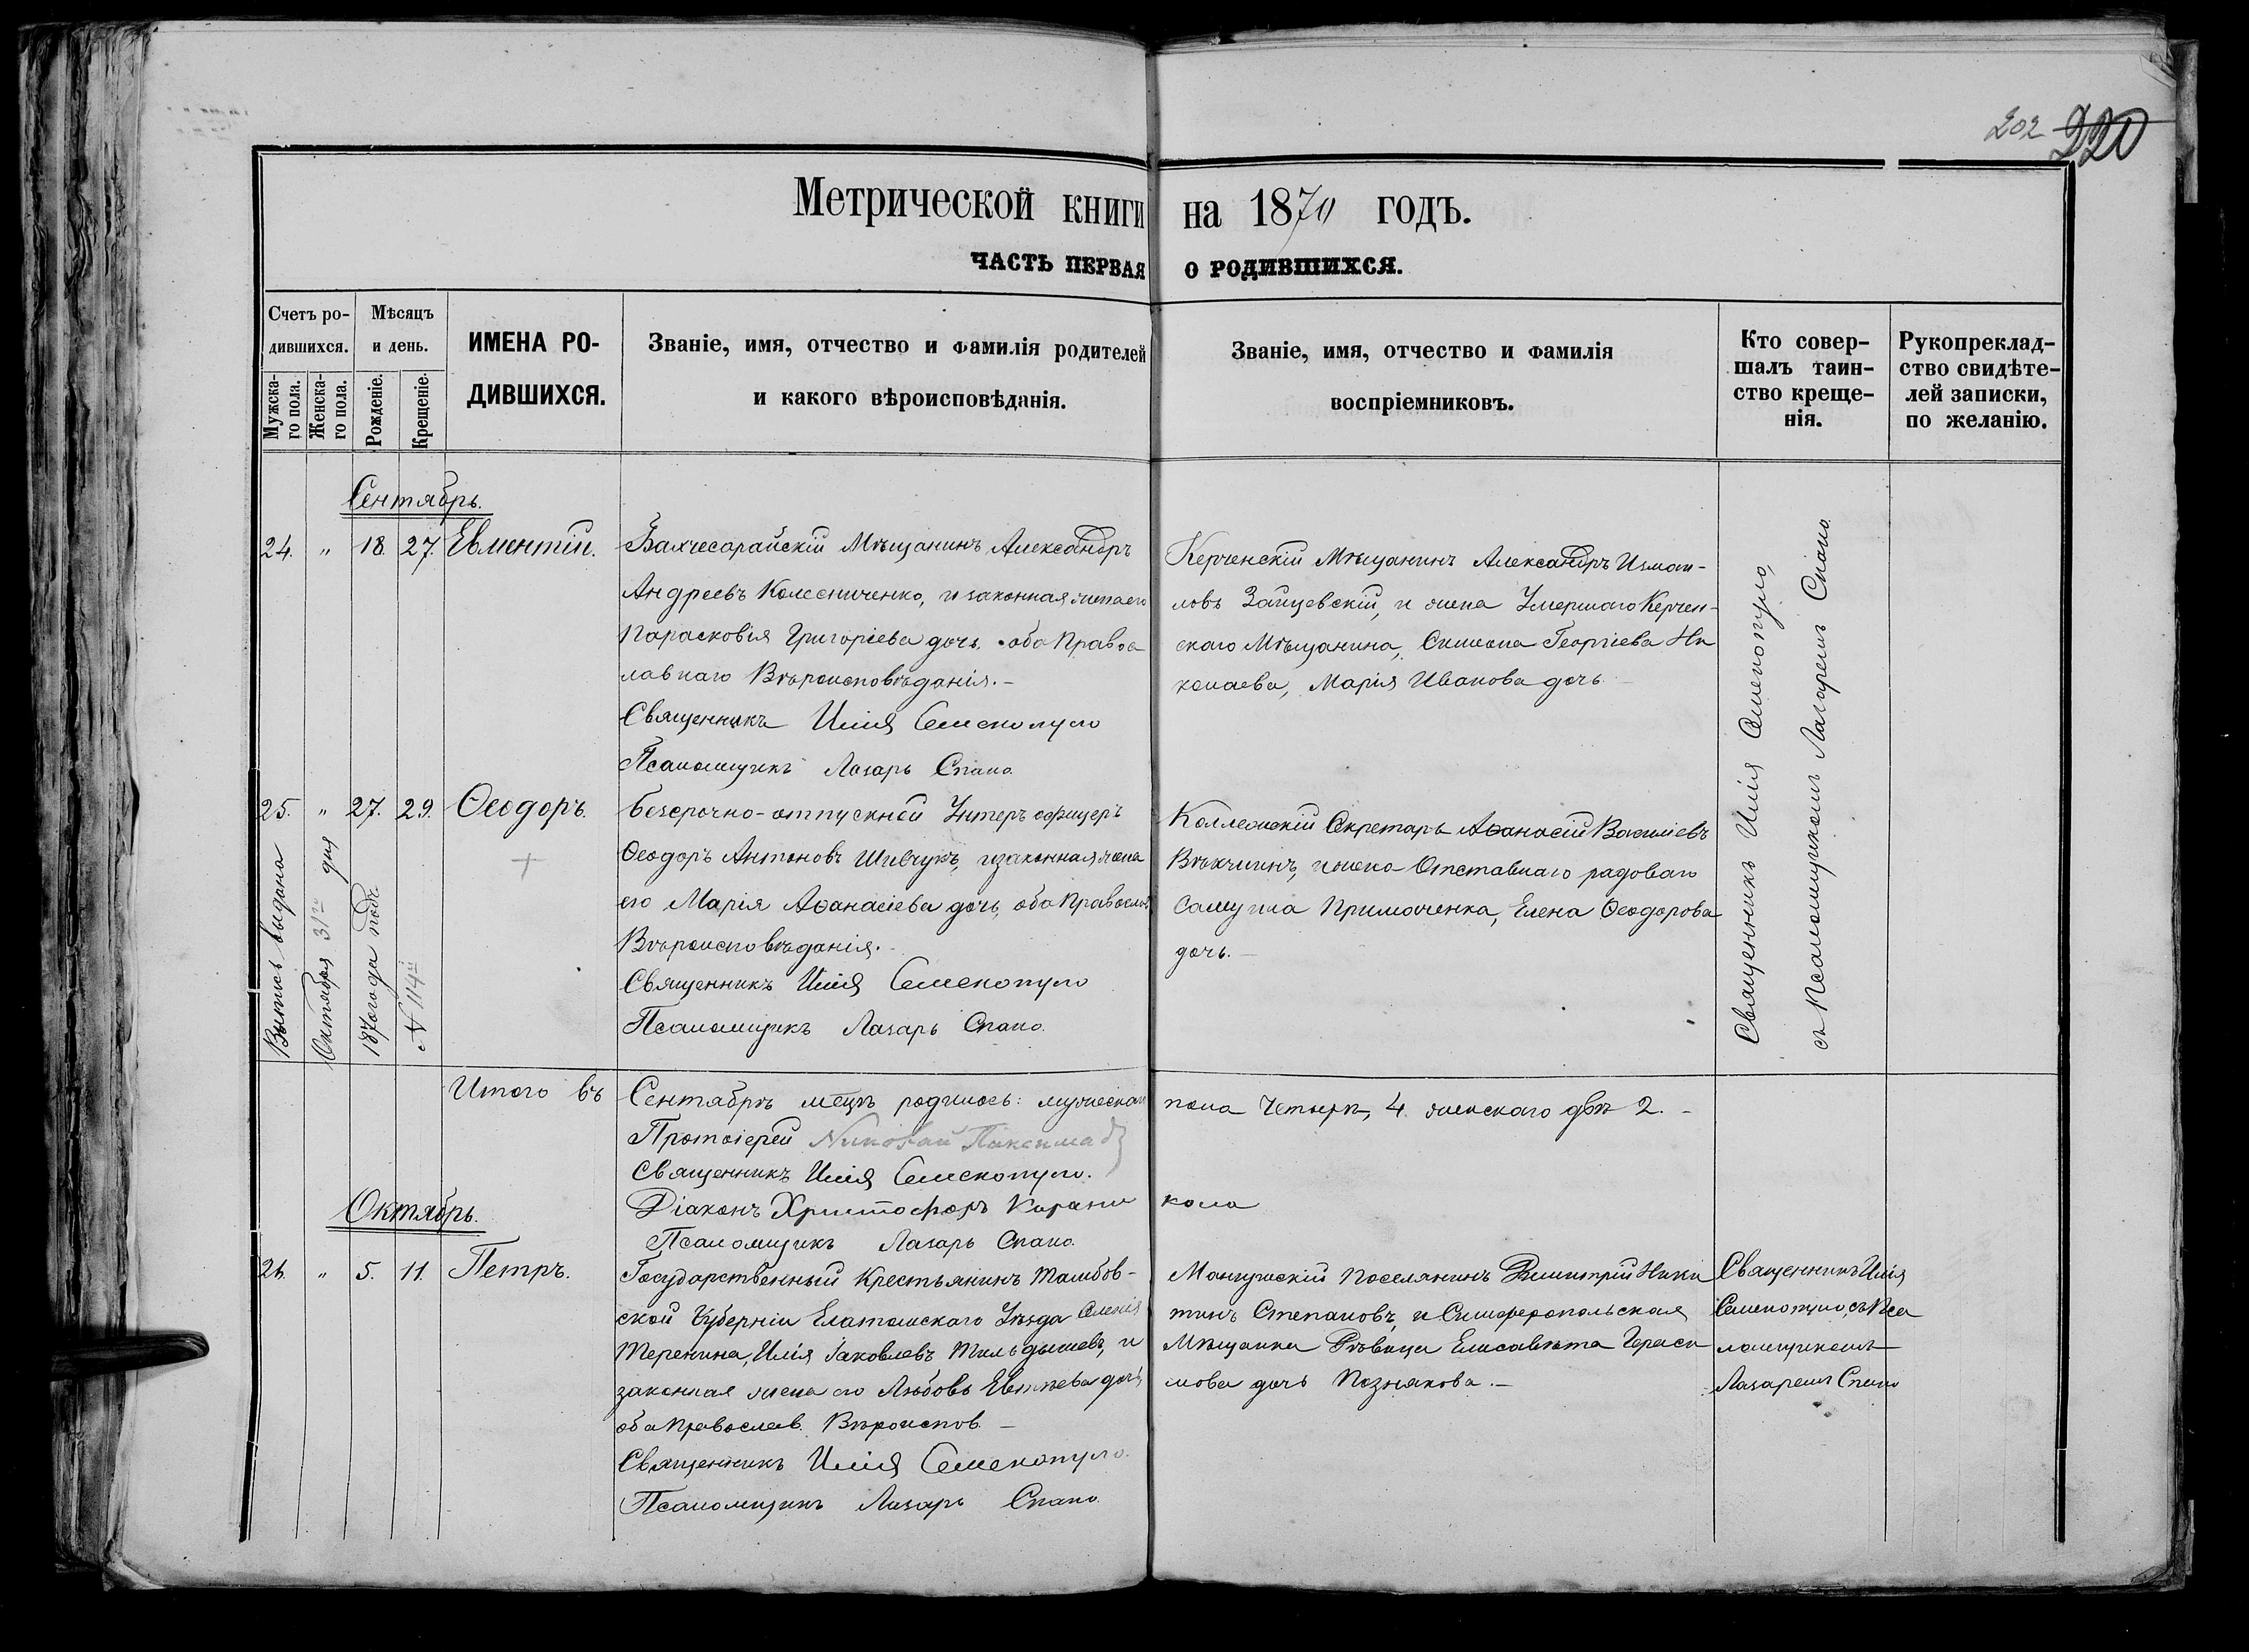 202 220
Метрической книги на 1870 годъ.
ЧАСТЬ ПЕРВАЯ О РОДИВШИХСЯ.
Счетъ ро-
дившихся.
Мужска-
го пола.
Женска-
го пола.
Мѣсяцъ
и день.
Рожденіе.
Крещеніе.
ИМЕНА РО-
ДИВШИХСЯ.
Званіе, имя, отчество и фамилія родителей
и какого вѣроисповѣданія.
Званіе, имя, отчество и фамилія
воспріемниковъ.
Кто совер-
шалъ таин-
ство креще-
нія.
Рукопреклад-
ство свидѣте-
лей записки,
по желанію.
Сентябрь.
24. " 18. 27. Евментій.
Бахчесарайскій Мѣщанинъ Александръ
Андреевъ Колесниченко, и законная жена его
Парасковія Григоріева дочь. оба Правос
лавнаго Вѣроисповѣданія.-
Священникъ Илія Семенопуло
Псаломщикъ Лазарь Спано.
Керченскій Мѣщанинъ Александръ Измаи-
ловъ Зайцевскій, и жена Умершаго Керчен-
скаго Мѣщанина, Симеона Георгіева Ни
колаева, Марія Иванова дочь.
Священникъ Илія Семенопуло,
съ Псаломщикомъ Лазаремъ Спано.
25. " 27. 29. Ѳеодоръ.
Безсрочно-отпускной Унтеръ офицеръ
Ѳеодоръ Антоновъ Шевчукъ, и законная жена
его Марія Аѳанасіева дочь, оба Православ
Вѣроисповѣданія.
Священникъ Илія Семенопуло
Псаломщикъ Лазарь Спано.
Коллежскій Секретарь Аѳанасій Василіевъ
и жена Отставнаго рядоваго
Самуила Примоченка, Елена Ѳеодорова
дочь.-
Выпись выдана
Октября 31го дня
1870 года подъ
№ 114й
Итого въ Сентябрѣ мѣцѣ родилось: мужескаго пола Четыре, 4. женскаго двѣ 2.-
Протоіерей Николай
Священникъ Илія Семенопуло.
Діаконъ Христофоръ Карани кола
Псаломщикъ Лазарь Спано.
Октябрь.
26. " 5. 11. Петръ.
Государственный Крестьянинъ Тамбов-
ской Губерніи Елатомскаго Уѣзда Селенія
Теренина, Илія Іаковлевъ и
законная жена его Любовь дочь,
оба Православ. Вѣроиспов.-
Священникъ Илія Семенопуло.
Псаломщикъ Лазарь Спано.
Мангушскій Поселянинъ Димитрій Ники
тинъ Степановъ, и Симферопольская
Мѣщанка Дѣвица Елисавѣта Гераси
мова дочь Познякова.-
Священникъ Илія
Семенопуло, съ Пса
ломщикомъ
Лазаремъ Спано